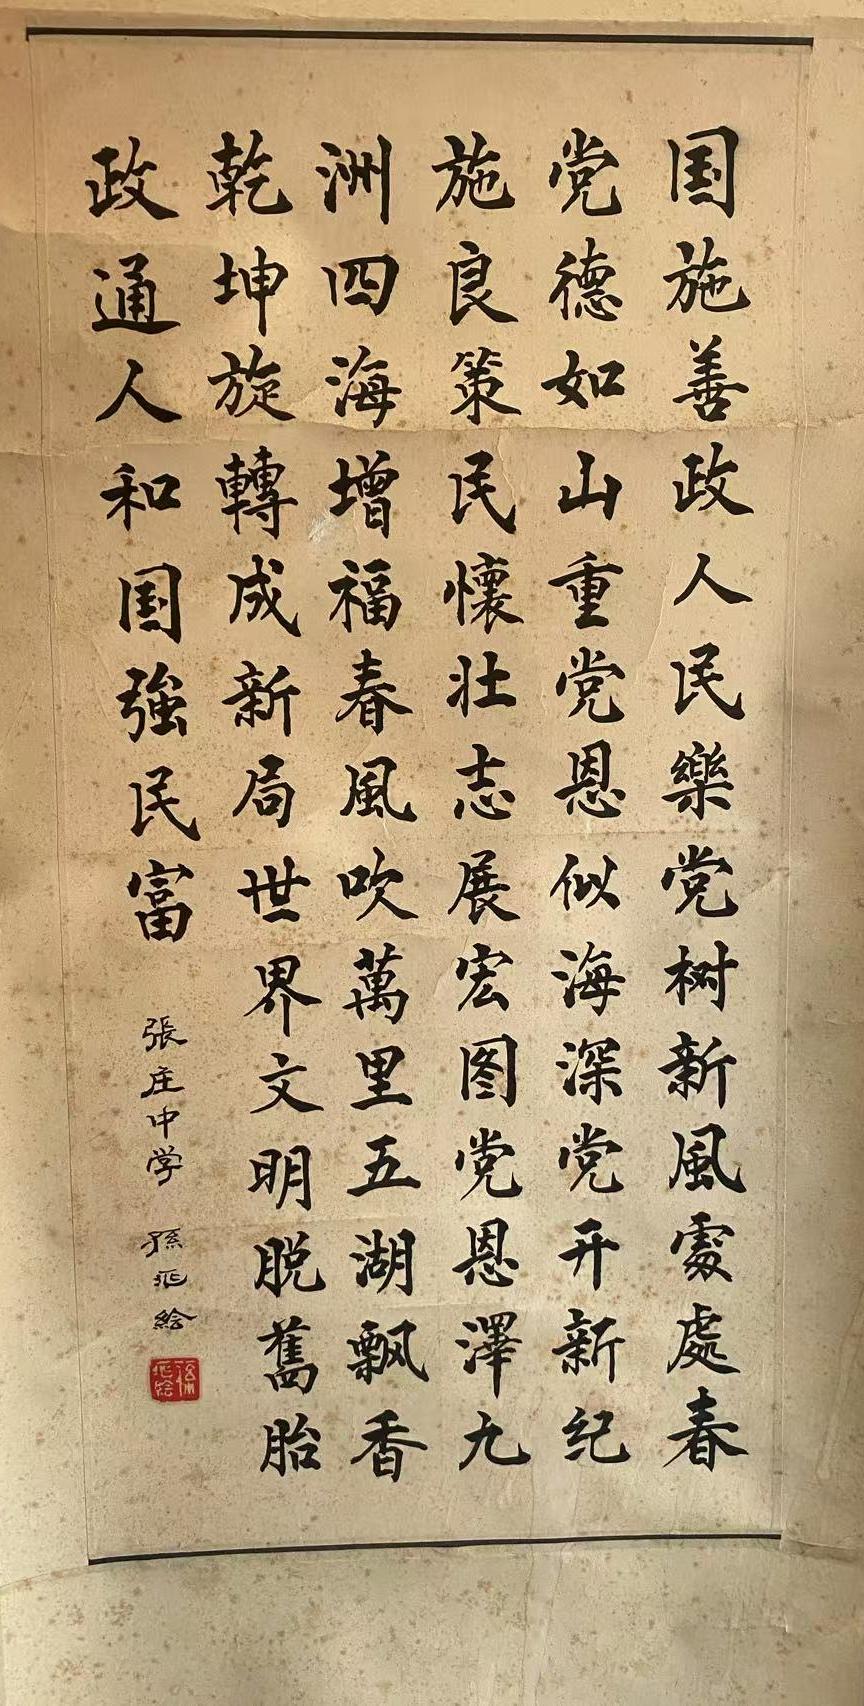 国施善政人民樂党树新風處處春
党德如山重党恩似海深党开新纪
施良策民懷壮志展宏图党恩澤九
洲四海增福春風吹萬里五湖飘香
乾坤旋轉成新局世界文明脱舊胎
政通人和国強民富
張庄中学 孫 繪